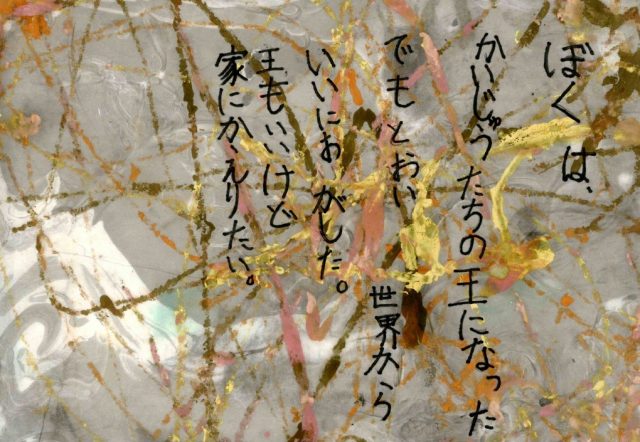 ぼくは、
かいじゅうたちの王になった
でもとおい世界から
いいにおがした。
王もいいけど
家にかえりたい。